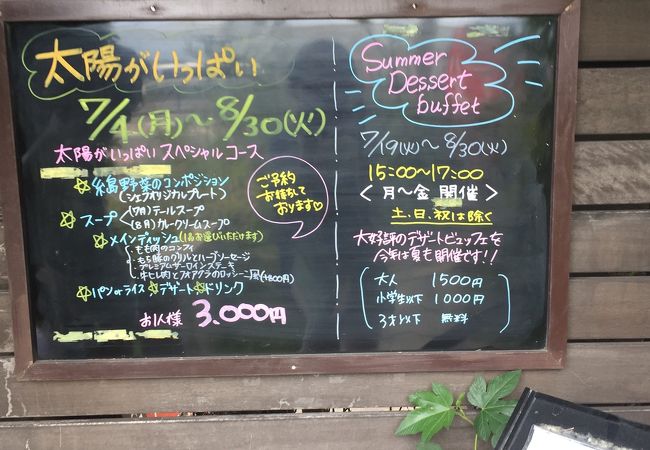 太陽がいっぱい
7/4(月)〜8/30(火)
太陽がいっぱいスペシャルコース
☆糸島野菜のコンポジション
(シェフオリジナルプレート)
☆スープ (7月)テールスープ
(8月)カレークリームスープ
☆メインディッシュ(1品お選びいただけます)
・もも肉のコンフィ
・もち豚のグリルとハーブソーセージ
・プレミアムサーロインステーキ
・牛ヒレ肉とフォアグラのロッシーニ風(+800円)
☆パンorライス ☆デザート ☆ドリンク
お1人様 3.000円
ご予約
お待ちして
おります♡
Summer
Dessert
buffet
7/19(火)〜8/30(火)
15:00〜17:00
<月〜金 開催>
土、日、祝は除く
大好評のデザートビュッフェを
今年は夏も開催です!!
大人 1500円
小学生以下 1000円
3才以下 無料